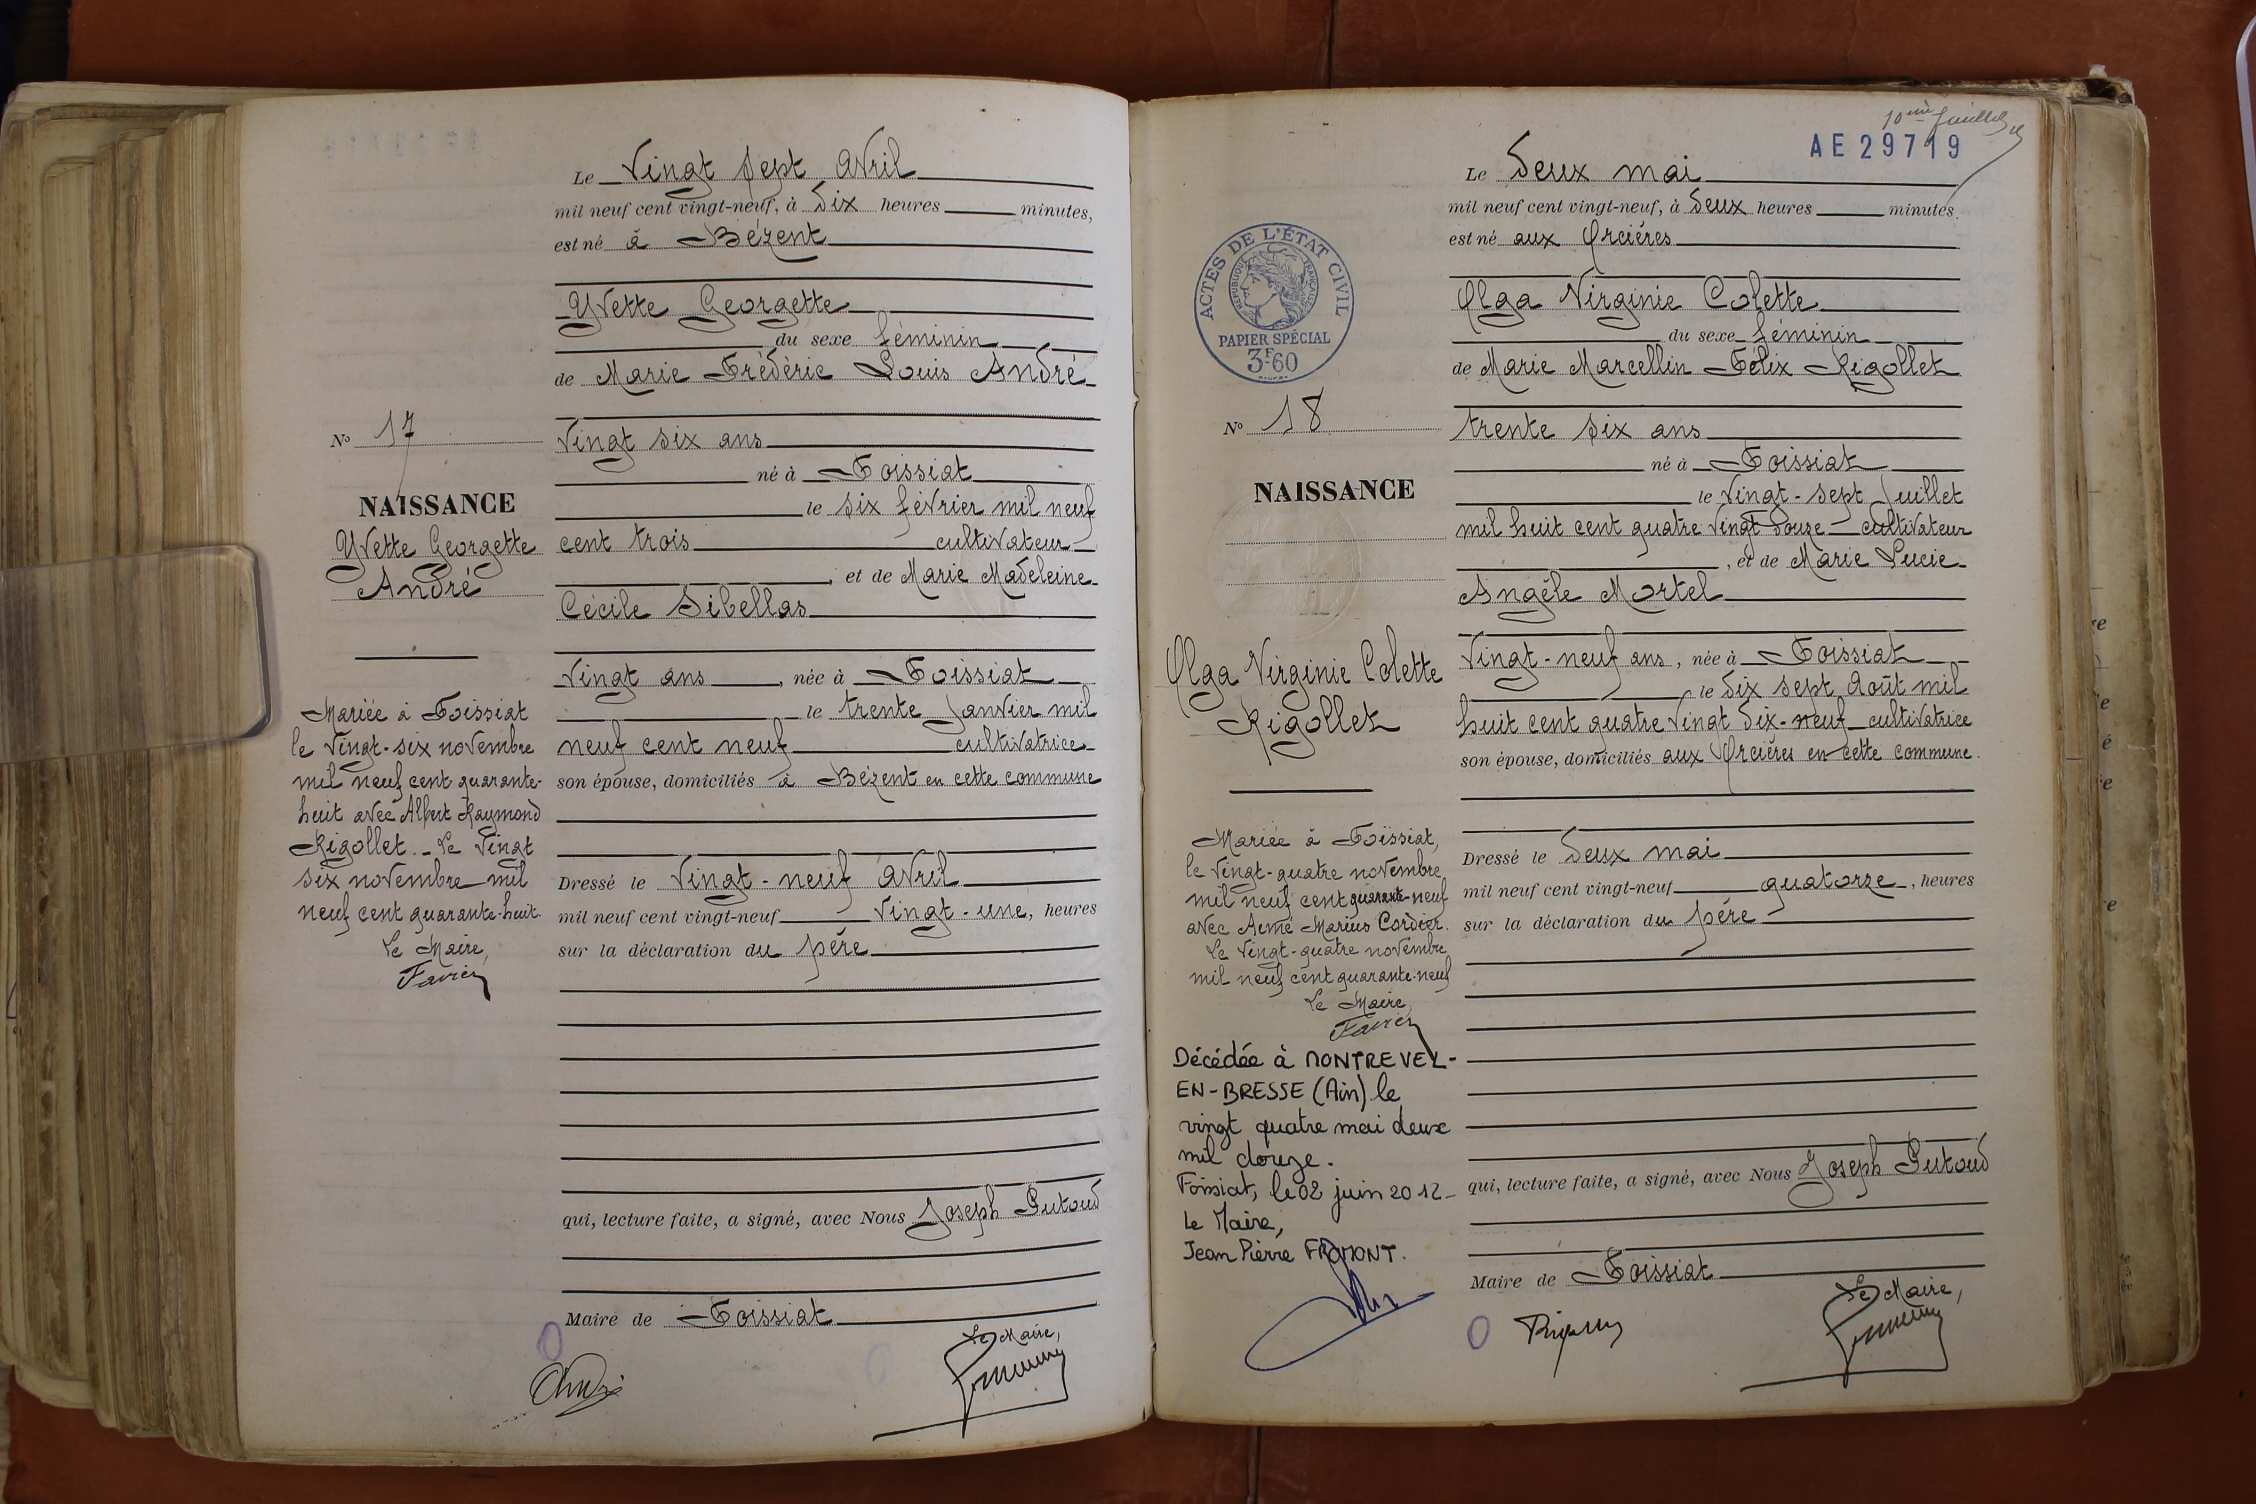 Le Vingt sept Avril
mil neuf cent vingt-neuf, à dix heures minutes,
est né à Bézent
Yvette Georgette
du sexe féminin
de Marie Frédéric Louis André
Vingt six ans
né à Foissiat
le six février mil neuf
cent trois cultivateur
, et de Marie Madeleine
Cécile Sibellas
Vingt ans , née à Foissiat
le trente Janvier mil
neuf cent neuf cultivatrice
son épouse, domiciliés à Bézent en cette commune
Dressé le Vingt-neuf Avril
mil neuf cent vingt-neuf Vingt-une, heures
sur la déclaration du père
qui, lecture faite, a signé, avec Nous Joseph Putoud
Maire de Foissiat
Le Maire,
No 17
NAISSANCE
Yvette Georgette
André
Mariée à Foissiat
le Vingt-six novembre
mil neuf cent quarante-
huit avec Albert Raymond
Rigollet. Le Vingt
six novembre mil
neuf cent quarante-huit.
Le Maire,
Favier
10ème feuillet
AE 29719
Le Deux mai
mil neuf cent vingt-neuf, à Deux heures minutes
est né aux Orcières
Olga Virginie Colette
du sexe féminin
de Marie Marcellin Félix Rigollet
trente six ans
né à Foissiat
le Vingt-sept Juillet
mil huit cent quatre vingt Douze cultivateur
, et de Marie Lucie
Angèle Mortel
Vingt-neuf ans, née à Foissiat
le Dix sept Août mil
huit cent quatre Vingt Dix-neuf cultivatrice
son épouse, domiciliés aux Orcières en cette commune.
Dressé le Deux mai
mil neuf cent vingt-neuf quatorze, heures
sur la déclaration du père
qui, lecture faite, a signé, avec Nous Joseph Putoud
Maire de Foissiat
Le Maire,
ACTES DE L'ÉTAT CIVIL
RÉPUBLIQUE FRANÇAISE
PAPIER SPÉCIAL
3F.60
No 18
NAISSANCE
Olga Virginie Colette
Rigollet
Mariée à Foissiat,
le Vingt-quatre novembre
mil neuf cent quarante-neuf
avec Aimé Marius Cordier.
Le Vingt-quatre novembre
mil neuf cent quarante-neuf
Le Maire,
Favier
Décédée à MONTREVEL-
EN-BRESSE (Ain) le
vingt quatre mai deux
mil douze.
Foissiat, le 02 juin 2012
Le Maire,
Jean Pierre FROMONT.